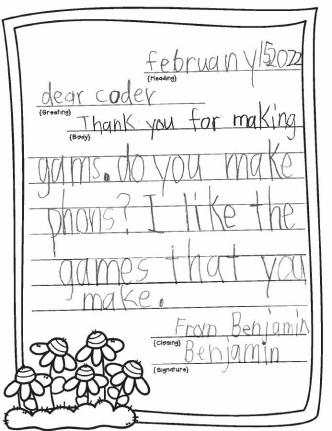 februany 15 2022
(Heading)
dear coder
(Greeting)
Thank you for making
(Body)
gams. do you make
phons? I like the
games that you
make.
From Benjamin
(Closing)
Benjamin
(Signature)